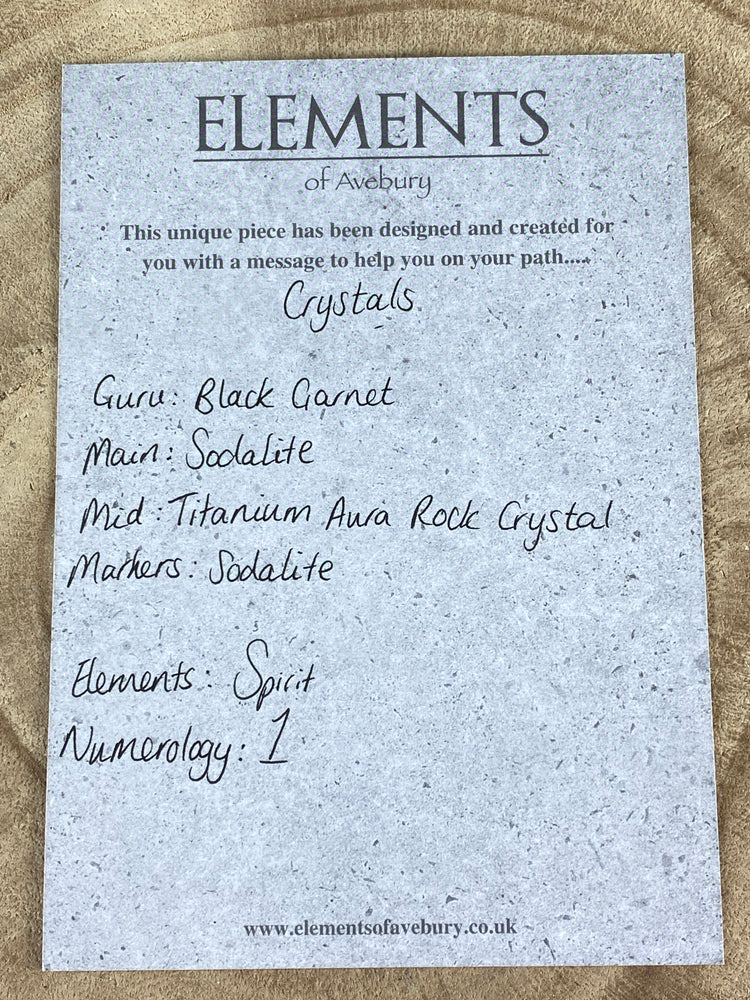 ELEMENTS
of Avebury
This unique piece has been designed and created for
you with a message to help you on your path....
Crystals
Guru: Black Garnet
Main: Sodalite
Mid: Titanium Aura Rock Crystal
Markers: Sodalite
Elements: Spirit
Numerology: 1
www.elementsofavebury.co.uk